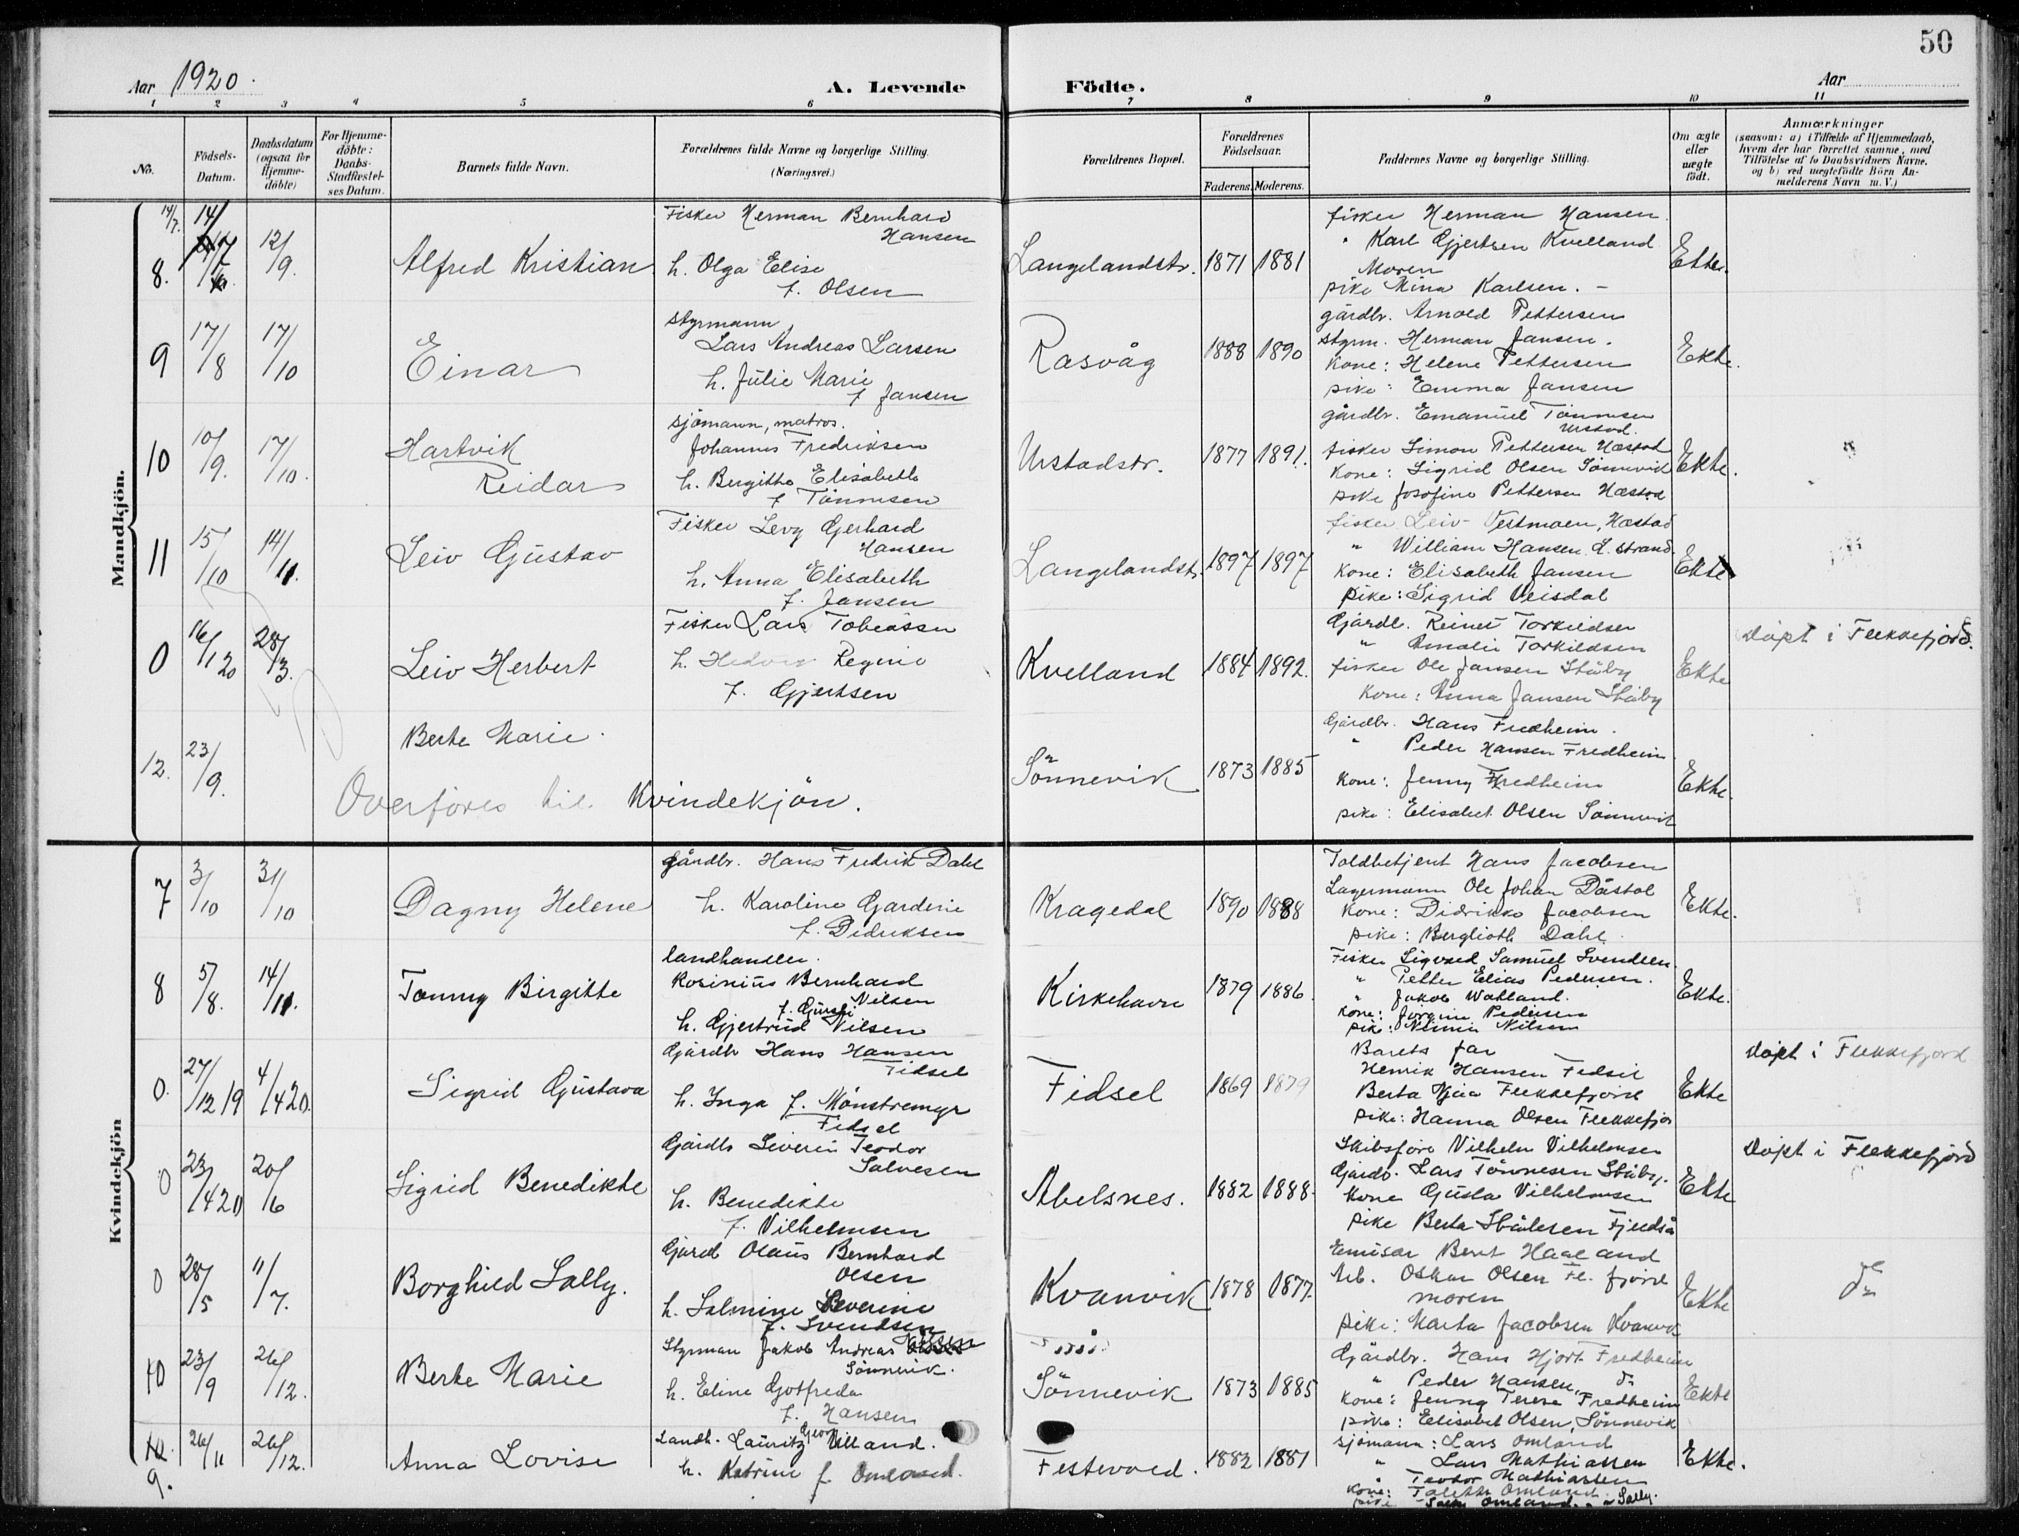 50
Aar 1920.
A. Levende Födte.
Aar
1 2 3 4 5 6 7 8 9 10 11
No.
Födsels-Datum.
Daabsdatum (ogsaa for Hjemme-döbte)
For Hjemme-döbte: Daabs-Stadfæstel-ses Datum.
Barnets fulde Navn.
Forældrenes fulde Navne og borgerlige Stilling. (Næringsvei.)
Forældrenes Bopæl.
Forældrenes Födselsaar.
Faderens. Moderens.
Faddernes Navne og borgerlige Stilling.
Om ægte eller uægte födt.
Anmærkninger
(saasom: a) i Tilfælde af Hjemmedaab,
hvem der har forrettet samme, med
Tilföielse af to Daabsvidners Navne.
og b) ved uægtefödte Börn An-
melderens Navn m. V.)
Mandkjön.
14/7.
8. 14/7 12/9 Alfred Kristian
Fisker Herman Bernhard
Hansen
h. Olga Elise
f. Olsen
Langelandstr. 1871 1881
fisker Herman Hansen.
" Karl Gjertsen Kvelland
Moren
pike Mina Karlsen. –
Ekte.
9 17/8 17/10 Einar
styrmann
Lars Andreas Larsen
h. Julie Marie
f Jansen
Rasvåg 1888 1890
gårdbr. Arnold Pettersen
styrm. Herman Jansen.
Kone: Helene Pettersen
pike: Emma Jansen
Ekte.
10 10/9. 17/10. Hartvik
Reidar
sjømann, matros.
Johannes Fredriksen
h. Bergitte Elisabeth
f Tönnesen
Urstadstr. 1877 1891.
gårdbr. Emanuel Tönnesen
Urstad.
fisker Simon Pettersen Næstad
Kone: Sigrid Olsen Sönnevik
pike Josefine Pettersen Næstad
Ekte.
11 15/10 14/11. Leiv Gustav
Fisker Levy Gerhard
Hansen
h. Anna Elisabeth
f. Jansen
Langelandstr. 1897 1897
fisker Leiv Vestmoen, Næstad
" William Hansen L. strand.
Kone: Elisabeth Jansen
Pike: Sigrid Veisdal
Ekte
0 16/1 20 28/3. Leiv Herbert
Fisker Lars Tobiassen
h. Hedvig Regine
f. Gjertsen
Kvelland 1884 1892.
Gårdb. Reinert Torkildsen
" Amalie Torkildsen
fisker Ole Jansen Ståby
Kone: Anna Jansen Ståby
Ekte
Döpt i Flekkefjord.
12. 23/9. Berte Marie.
Overföres til Kvindekjön.
Sönnevik 1873 1885
Gårdbr. Hans Fredheim.
" Peder Hansen Fredheim
Kone: Jenny Fredheim
pike: Elisabet Olsen Sönnevik
Ekte.
Kvindekjön
7 3/10 31/10 Dagny Helene
gårdbr. Hans Fredrik Dahl
h. Karoline Gardine
f. Didriksen
Kragedal 1890 1888
Toldbetjent Hans Jacobsen
Lagermann Ole Johan Dåstøl
Kone: Didrikke Jacobsen
pike: Berglioth Dahl.
Ekte.
8 5/8. 14/11. Tommy Birgitte
landhandler.
Rosinius Bernhard
Nilsen
h. Gjertrud Nilsen
Kirkehavn 1879 1886.
Fisker Sigvard Samuel Svendsen.
" Petter Elias Pedersen.
" Jakob Watland.
Kone: Jorgine Pedersen
pike: Nilsen
Ekte.
0. 27/12 19 4/4 20. Sigrid Gustava
Gårdb Hans Hansen
Fidsel
h. Inga f. Mönstremyr
Fidsel
Fidsel 1869 1879
Barets far
Henrik Hansen Fidsel
Berta Flekkefjord
pike: Hanna Olsen Flekkefjor
Ekte
Döpt i Flekkefjord
0 23/4 20 20/6 Sigrid Benedikte
Gårdb Severin Teodor
Salvesen
h. Benedikte
f. Vilhelmsen
Abelsnes. 1882 1888.
Skibsföre Vilhelm Vilhelmsen
Gårdb. Lars Tönnesen Ståby.
Kone Gusta Vilhelmsen
pike Berta Ståleson Fjeldså
Ekte
Döpt i Flekkefjord
0 28/5 11/7. Borghild Sally.
Gård Olaus Bernhard
Olsen
h. Salmine Severine
f. Svendsen
Kvanvik 1878 1877.
Emisær Bernt Haaland
Arb. Oskar Olsen Fl. fjord
moren
pike: Marta Jacobsen Kvanvik
Ekte
do
10 23/9 26/12. Berte Marie
Styrman Jakob Andreas
Sönnevik.
h. Eline Gotfreda
f. Hansen
Sönnevik 1873 1885
Gårdbr. Hans Hjort Fredheim
" Peder Hansen, do
Kone: Jenny Terese Fredheim
pike: Elisabet Olsen, Sönnevik
Ekte
9. 26/11 26/12. Anna Lovise
Landh. Lauritz Georg Villand.
h. Katrine f Omland.
Festevold. 1882 1881
sjömann: Lars Omland
" Lars Mathiassen
" Teodor Mathiassen
Kone: Omland
pike Omland
Ekte.